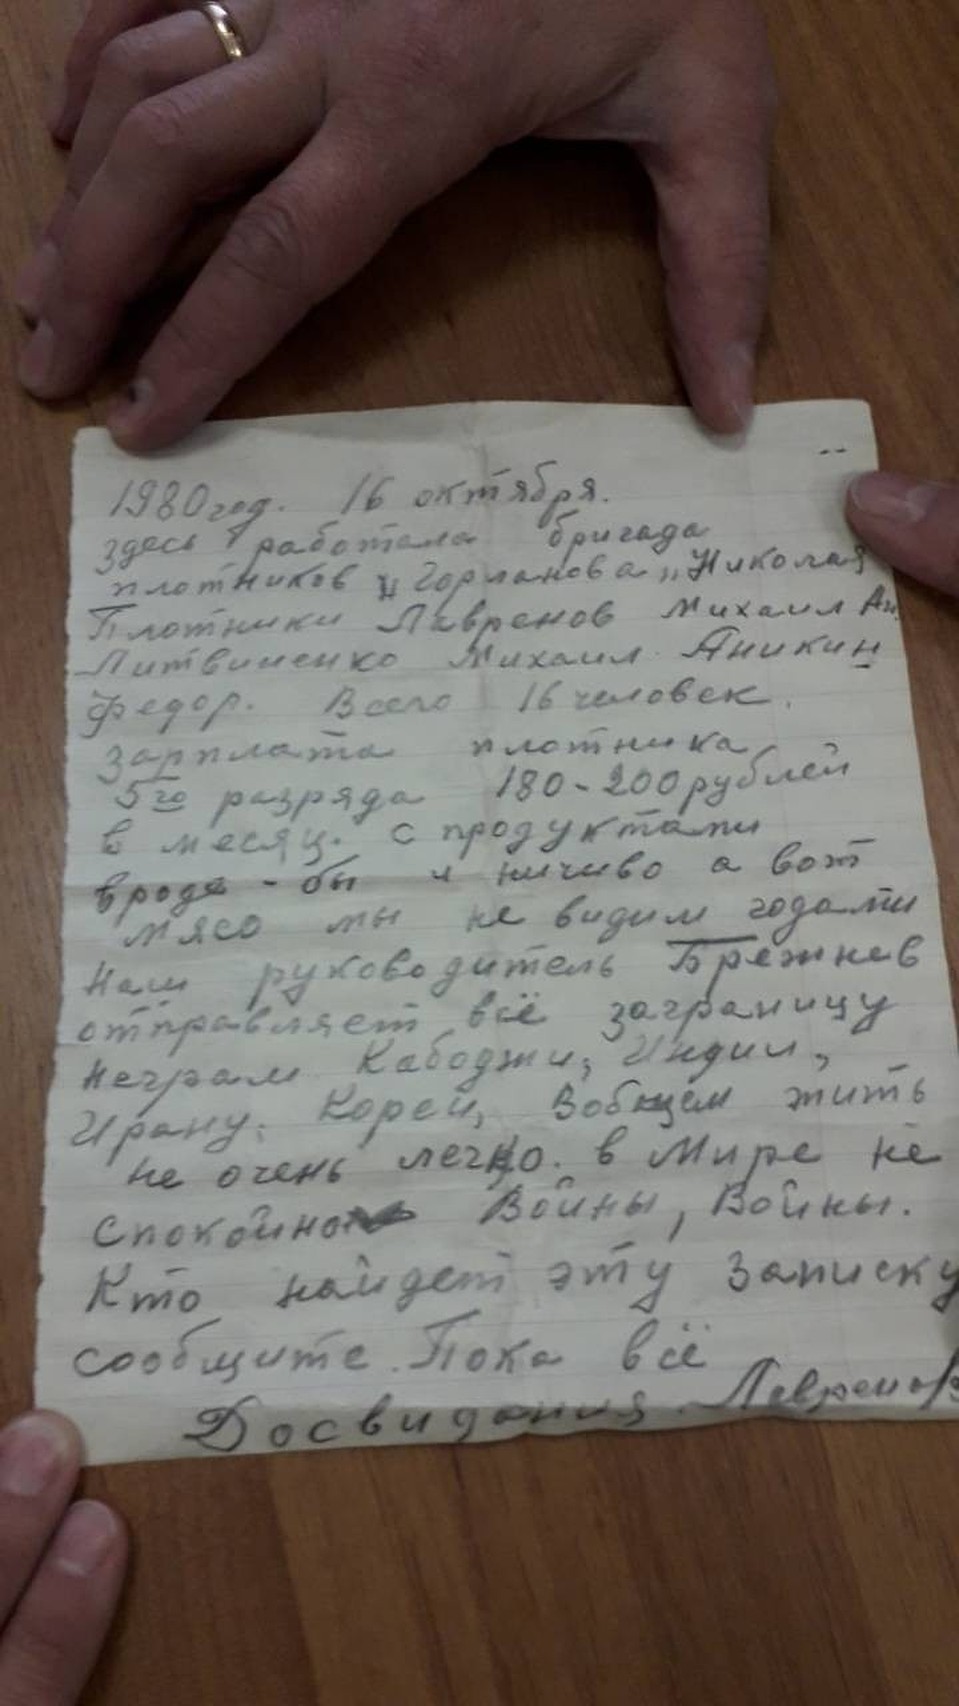 1980 год. 16 октября.
здесь работала бригада
плотников „Горланова„ Николая
Плотники Лавренов Михаил Ан.
Литвиненко Михаил Аникин
Федор. Всего 16 человек.
зарплата плотника
5го разряда 180-200 рублей
в месяц. с продуктами
вроде-бы и ничиво а вот
мясо мы не видим годами
Наш руководитель Брежнев
отправляет всё заграницу
Неграм Кабоджи, Индии,
Ирану, Кореи, Вобщем жить
не очень легко. в Мире не
спокойно Войны, Войны.
Кто найдет эту записку
сообщите. Пока всё
Досвидания. Лавренов